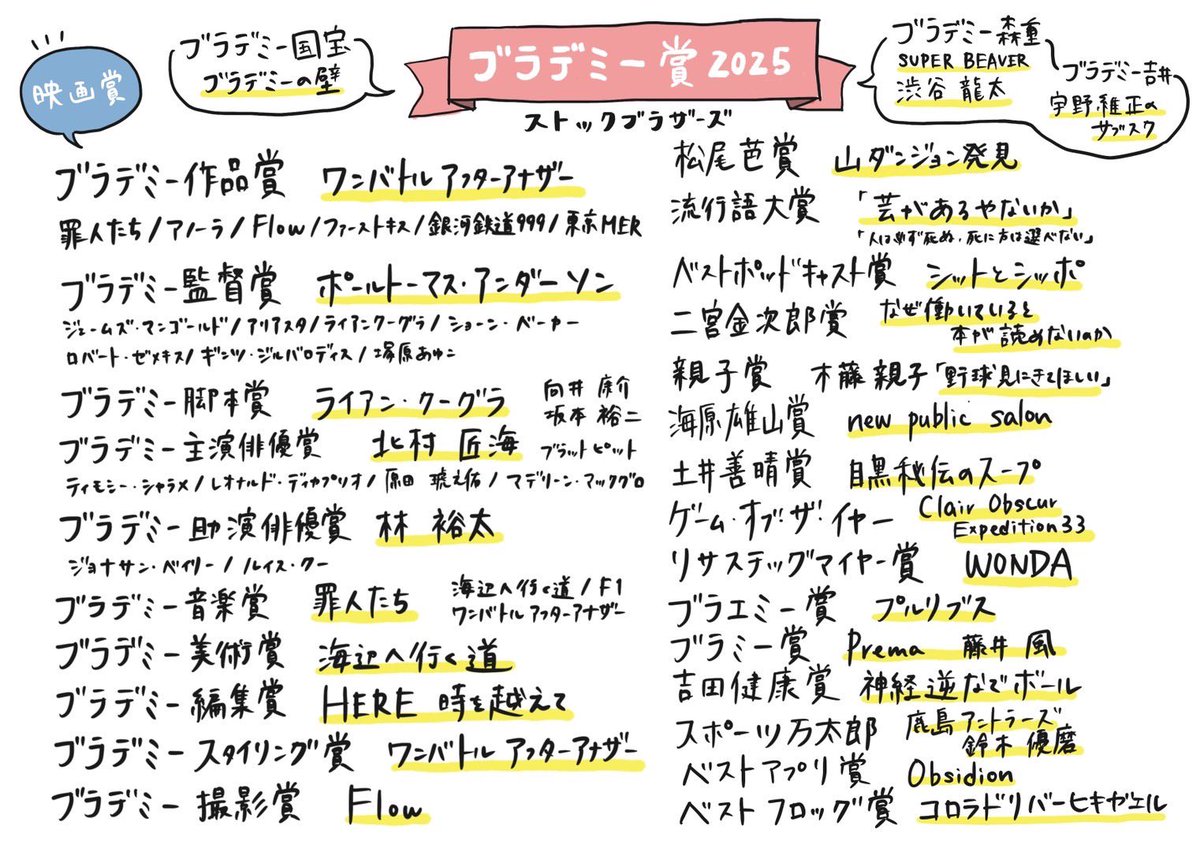 映画賞
ブラデミー国宝
ブラデミーの壁
ブラデミー賞 2025
ストックブラザーズ
ブラデミー森重
SUPER BEAVER
渋谷 龍太
ブラデミー吉井
宇野維正の
サブスク
ブラデミー作品賞 ワンバトル アフターアナザー
罪人たち/アノーラ/Flow/ファーストキス/銀河鉄道999/東京MER
ブラデミー監督賞 ポールトーマス・アンダーソン
ジェームズ・マンゴールド/アリアスタ/ライアンクーグラ/ショーン・ベーカー
ロバート・ゼメキス/ギンツ・ジルバロディス/塚原あゆこ
ブラデミー脚本賞 ライアン・クーグラ 向井康介
坂本裕二
ブラデミー主演俳優賞 北村 匠海 ブラットピット
ティモシー・シャラメ/レオナルド・ディカプリオ/原田 琥之佑/マデリーン・マックグロ
ブラデミー助演俳優賞 林 裕太
ジョナサン・ベイリー/ルイス・クー
ブラデミー音楽賞 罪人たち 海辺へ行く道/F1
ワンバトル アフターアナザー
ブラデミー美術賞 海辺へ行く道
ブラデミー編集賞 HERE 時を越えて
ブラデミー スタイリング賞 ワンバトル アフターアナザー
ブラデミー 撮影賞 Flow
松尾芭賞 山ダンジョン発見
流行語大賞 「芸があるやないか」
「人は必ず死ぬ、死に方は選べない」
ベストポッドキャスト賞 シットとシッポ
二宮金次郎賞 なぜ働いていると
本が読めないのか
親子賞 木藤親子「野球見にきてほしい」
海原雄山賞 new public salon
土井善晴賞 目黒秘伝のスープ
ゲーム・オブ・ザ・イヤー Clair Obscur
Expedition33
リサステッグマイヤー賞 WONDA
ブラエミー賞 プルリブス
ブラミー賞 Prema 藤井 風
吉田健康賞 神経逆なでボール
スポーツ万太郎 鹿島アントラーズ
鈴木優磨
ベストアプリ賞 Obsidion
ベストフロッグ賞 コロラドリバーヒキガエル